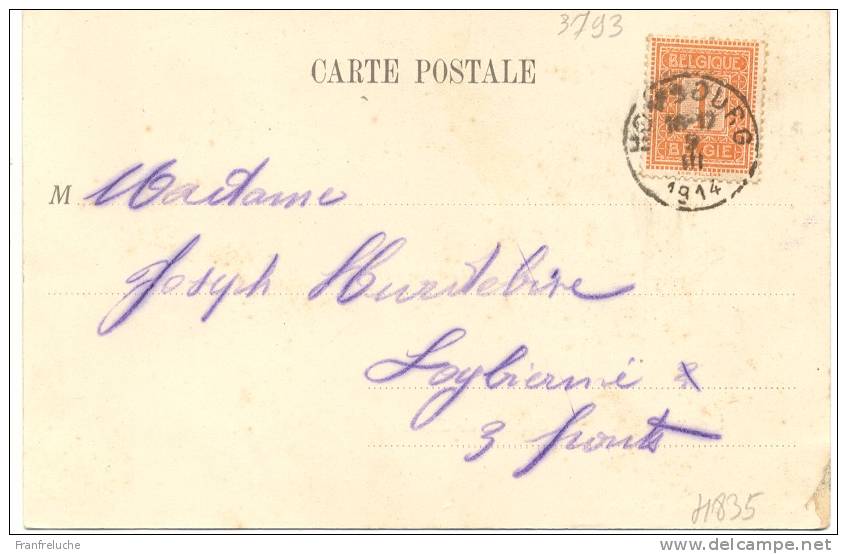 3793
CARTE POSTALE
BELGIQUE
1
BELGIE
HOMBOURG
16-17
7
III
1914
M Madame
Joseph Hurdebise
Logbiermé
3 ponts
H835
Franfreluche
www.delcampe.net